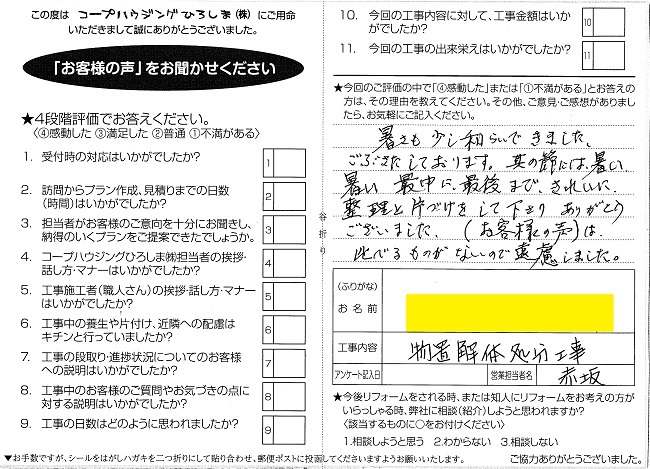 この度は コープハウジングひろしま(株) にご用命
いただきまして誠にありがとうございました。
「お客様の声」をお聞かせください
★4段階評価でお答えください。
〈④感動した ③満足した ②普通 ①不満がある〉
1. 受付時の対応はいかがでしたか? 1
2. 訪問からプラン作成、見積りまでの日数
(時間)はいかがでしたか? 2
3. 担当者がお客様のご意向を十分にお聞きし、
納得のいくプランをご提案できたでしょうか。 3
4. コープハウジングひろしま㈱担当者の挨拶・
話し方・マナーはいかがでしたか? 4
5. 工事施工者(職人さん)の挨拶・話し方・マナー
はいかがでしたか? 5
6. 工事中の養生や片付け、近隣への配慮は
キチンと行っていましたか? 6
7. 工事の段取り・進捗状況についてのお客様
への説明はいかがでしたか? 7
8. 工事中のお客様のご質問やお気づきの点に
対する説明はいかがでしたか? 8
9. 工事の日数はどのように思われましたか? 9
▼お手数ですが、シールをはがしハガキを二つ折りにして貼り合わせ、郵便ポストに投函してくださいますようお願いいたします。
谷折り
10. 今回の工事内容に対して、工事金額はいか
がでしたか? 10
11. 今回の工事の出来栄えはいかがでしたか? 11
★今回のご評価の中で「④感動した」または「①不満がある」とお答え
の方は、その理由を教えてください。その他、ご意見・ご感想がありまし
たら、お気軽にご記入ください。
暑さも少し和らいできました、
ごぶさたしております。其の節には、暑い
暑い 最中に、最後まで、きれいに、
整理と片づけをして下さり ありがとう
ございました、(お客様の声)は、
比べるものがないので遠慮しました。
(ふりがな)
お名前
工事内容 物置解体処分工事
アンケート記入日 営業担当者名 赤坂
★今後リフォームをされる時、または知人にリフォームをお考えの方が
いらっしゃる時、弊社に相談(紹介)しようと思われますか?
〈該当するものに○をお付けください〉
1.相談しようと思う 2.わからない 3.相談しない
ご協力ありがとうございました。